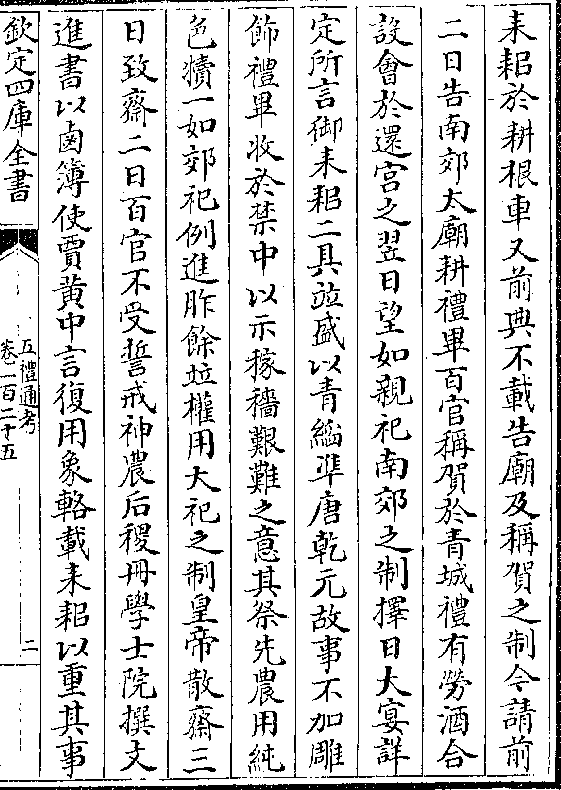 耒耜於耕根車又前典不載告廟及稱賀之制今請前
二日告南郊太廟耕禮畢百官稱賀於青城禮有勞酒合
設會於還宮之翌日望如親祀南郊之制擇日大宴詳
定所言御耒耜二具並盛以青縚準唐乾元故事不加雕
飾禮畢收於禁中以示稼穡艱難之意其祭先農用純
色犢一如郊祀例進胙餘並權用大祀之制皇帝散齋三
日致齋二日百官不受誓戒神農后稷冊學士院撰文
進書以鹵簿使賈黃中言復用象輅載耒耜以重其事
欽定四庫全書
五禮通考
卷一百二十五
二